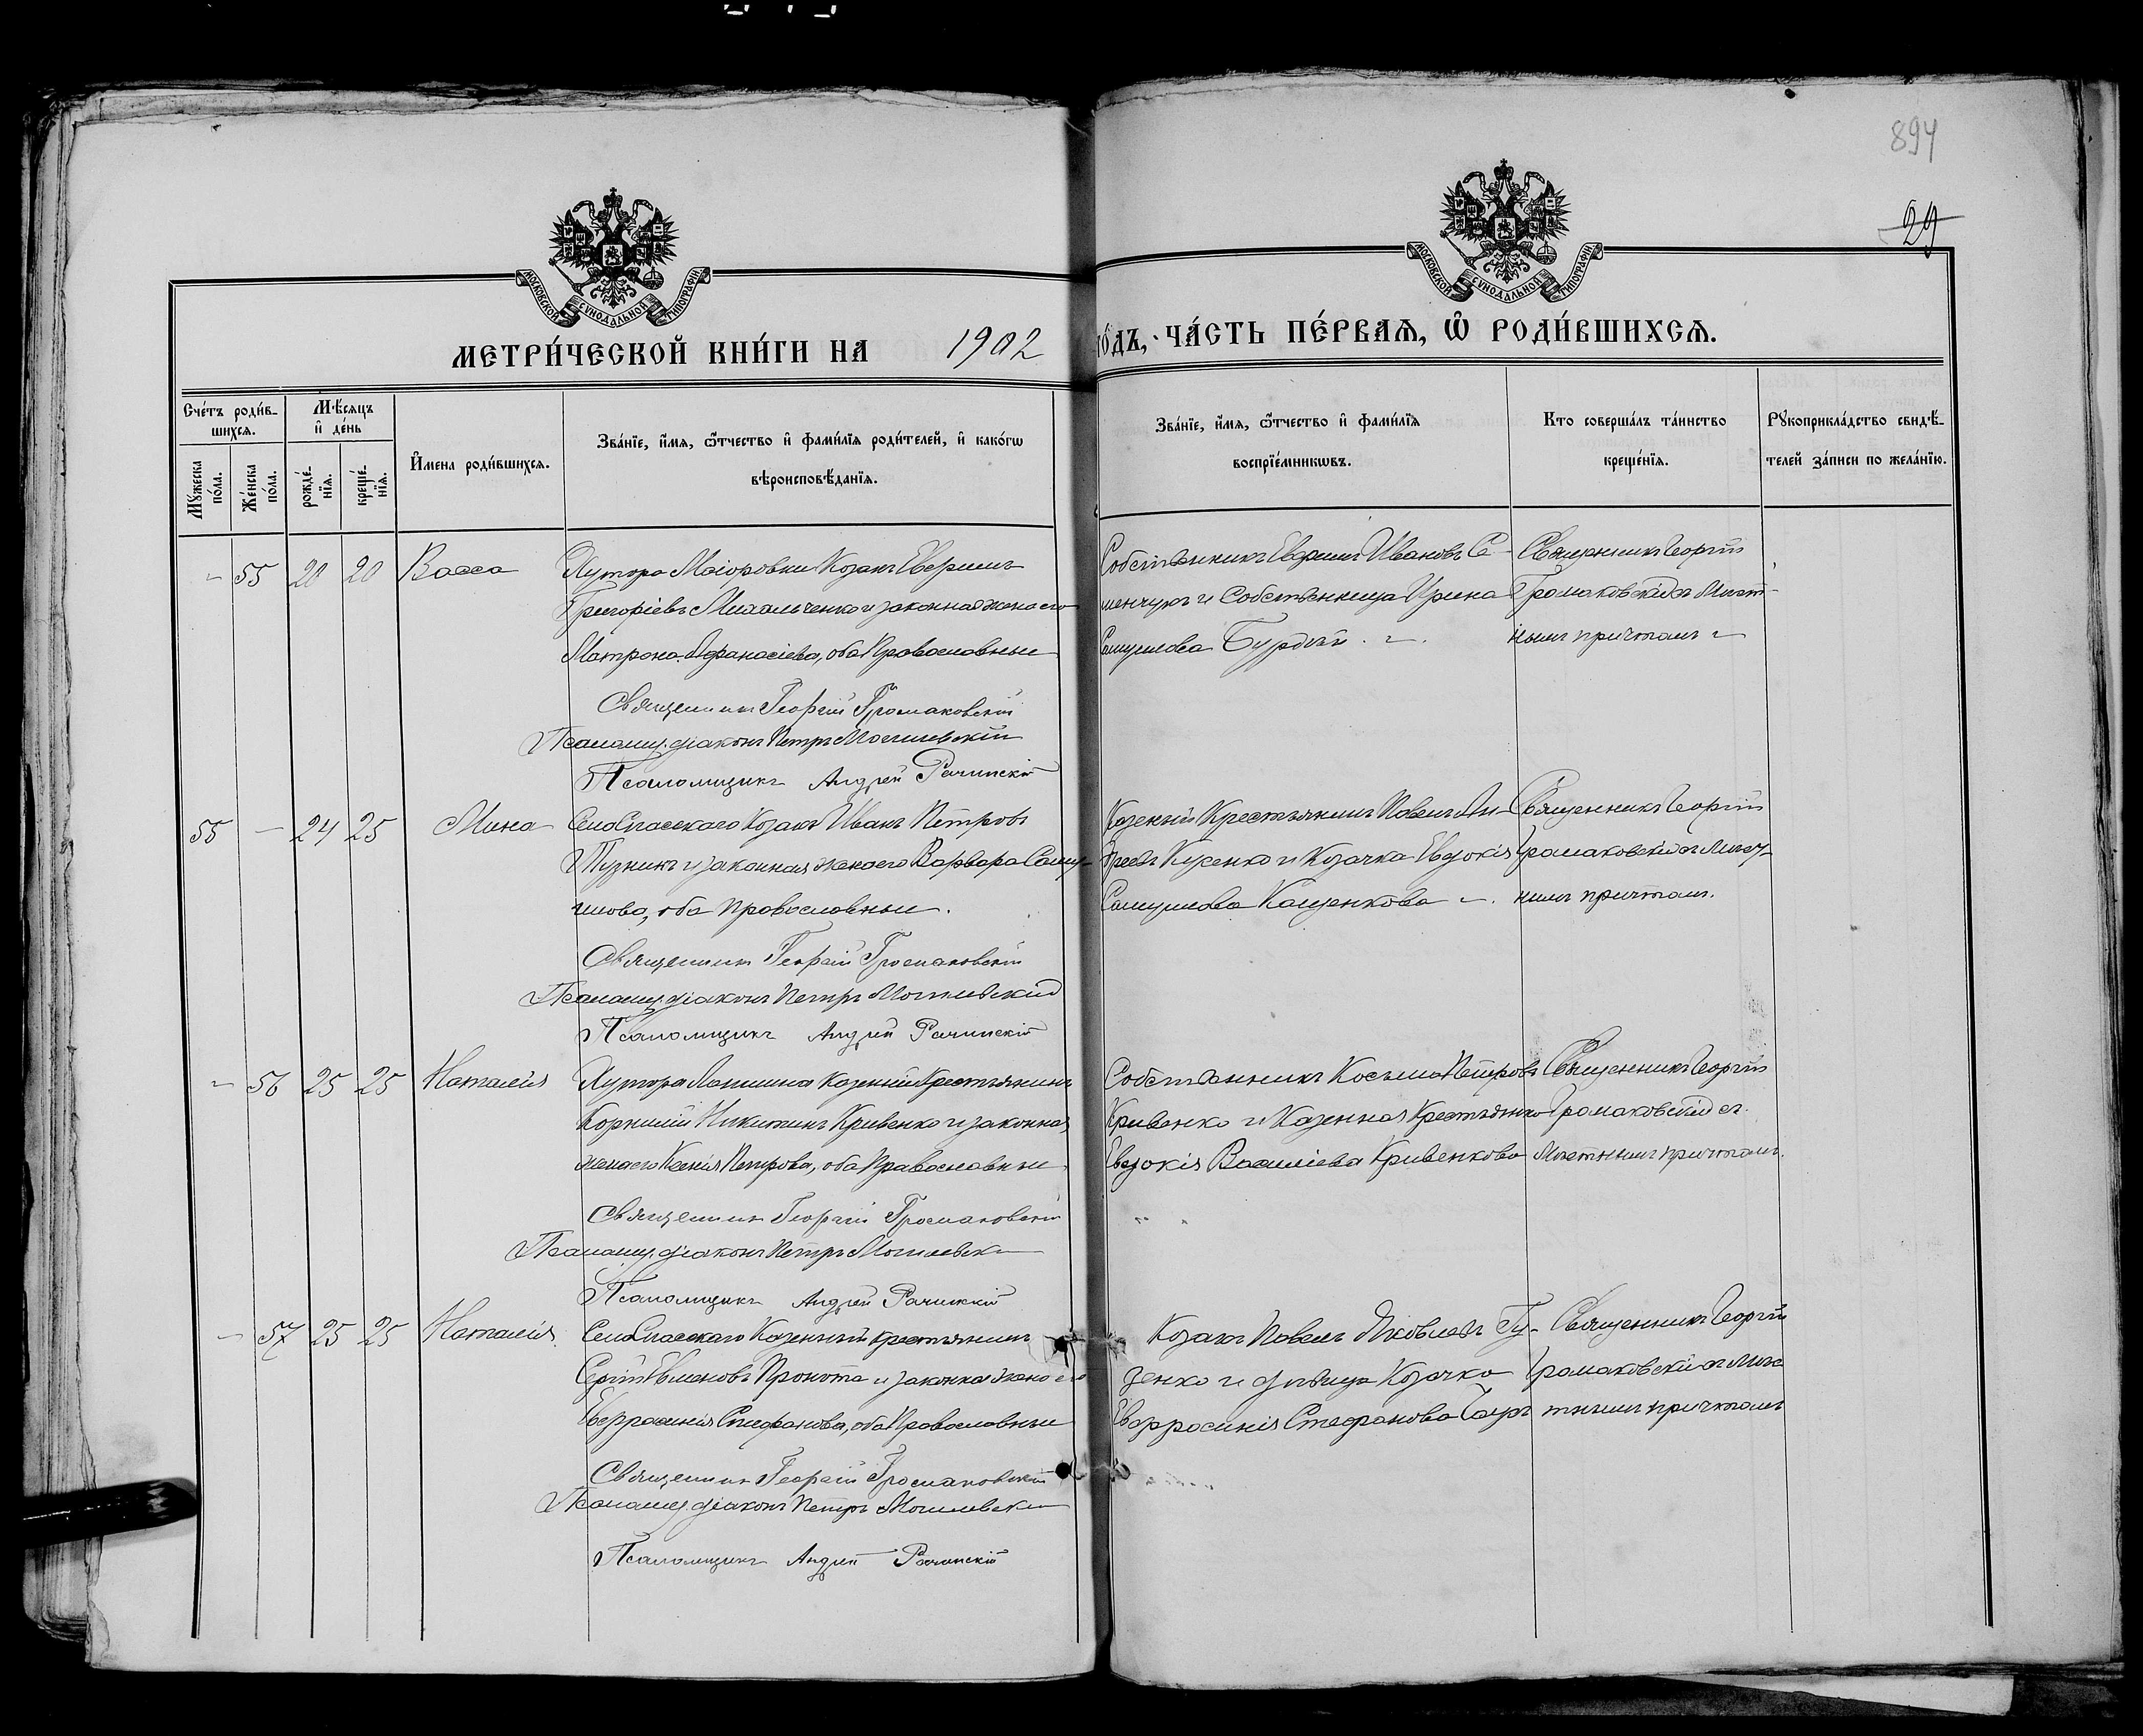 894
29
МОСКОВСКОЙ СѴНОДАЛЬНОЙ ТИПОГРАФІИ
МОСКОВСКОЙ СѴНОДАЛЬНОЙ ТИПОГРАФІИ
МЕТРИ́ЧЕСКОЙ КНИ́ГИ НА 1902
ГО́ДЪ, ЧА́СТЬ ПЕ́РВАѦ, Ѡ҆ РОДИ́ВШИХСѦ.
Сче́тъ роди́в-
шихсѧ.
Мꙋ́жеска
по́ла.
Же́нска
по́ла.
Мѣ́сѧцъ
и҆ де́нь
рожде́-
нїѧ.
креще́-
нїѧ.
И҆мена роди́вшихсѧ.
Зва́нїе, и҆́мѧ, ѻ҆́тчество и҆ фами́лїѧ роди́телей, и҆ како́гѡ
вѣроисповѣ́данїѧ.
Зва́нїе, и҆́мѧ, ѻ҆́тчество и҆ фами́лїѧ
воспрїе́мникѡвъ.
Кто соверша́лъ та́инство
креще́нїѧ.
Рꙋкоприкла́дство свидѣ́-
телей за́писи по жела́нїю.
- 55 20 20 Васса
Хутора Маіоровки Козакъ
Григоріевъ Михальченко и законная жена его
Матрона Афанасіева, оба Православные
Священникъ Георгій Громаковскій
Псаломщ. діаконъ Петръ Могилевскій
Псаломщикъ Андрей Рачинскій
Собственникъ Ивановъ Се-
менчукъ и Собственница Ирина
Самуилова
Священникъ Георгій
Громаковскій съ Мѣст-
нымъ причтомъ
55 - 24 25 Мина
Села Спасскаго Козакъ Иванъ Петровъ
и законная жена его Варвара Саму-
илова, оба Православные.
Священникъ Георгій Громаковскій
Псаломщ. діаконъ Петръ Могилевскій
Псаломщикъ Андрей Рачинскій
Казенный Крестьянинъ Павелъ Ан-
дреевъ Кусенко и Козачка Евдокія
Самуилова Кащенкова
Священникъ Георгій
Громаковскій съ Мѣст-
нымъ причтомъ.
- 56 25 25 Наталія
Хутора Лапшина Казенный Крестьянинъ
Корнилій Никитинъ Кривенко и законная
жена его Ксенія Петрова, оба Православные
Священникъ Георгій Громаковскій
Псаломщ. діаконъ Петръ Могилевскій
Псаломщикъ Андрей Рачинскій
Собственникъ Косьма Петровъ
Кривенко и Казенная Крестьянка
Евдокія Василіева Кривенкова
Священникъ Георгій
Громаковскій съ
Мѣстнымъ причтомъ.
- 57 25 25 Наталія
Села Спасскаго Казенный крестьянинъ
Сергій Евменовъ Прокопа и законная жена его
Евфросинія Стефанова, оба Православные
Священникъ Георгій Громаковскій
Псаломщ. діаконъ Петръ Могилевскій
Псаломщикъ Андрей Рачинскій
Козакъ Павелъ Яковлевъ Гу-
денко и дѣвица Козачка
Евфросинія Стефанова
Священникъ Георгій
Громаковскій съ Мѣс-
тнымъ причтомъ